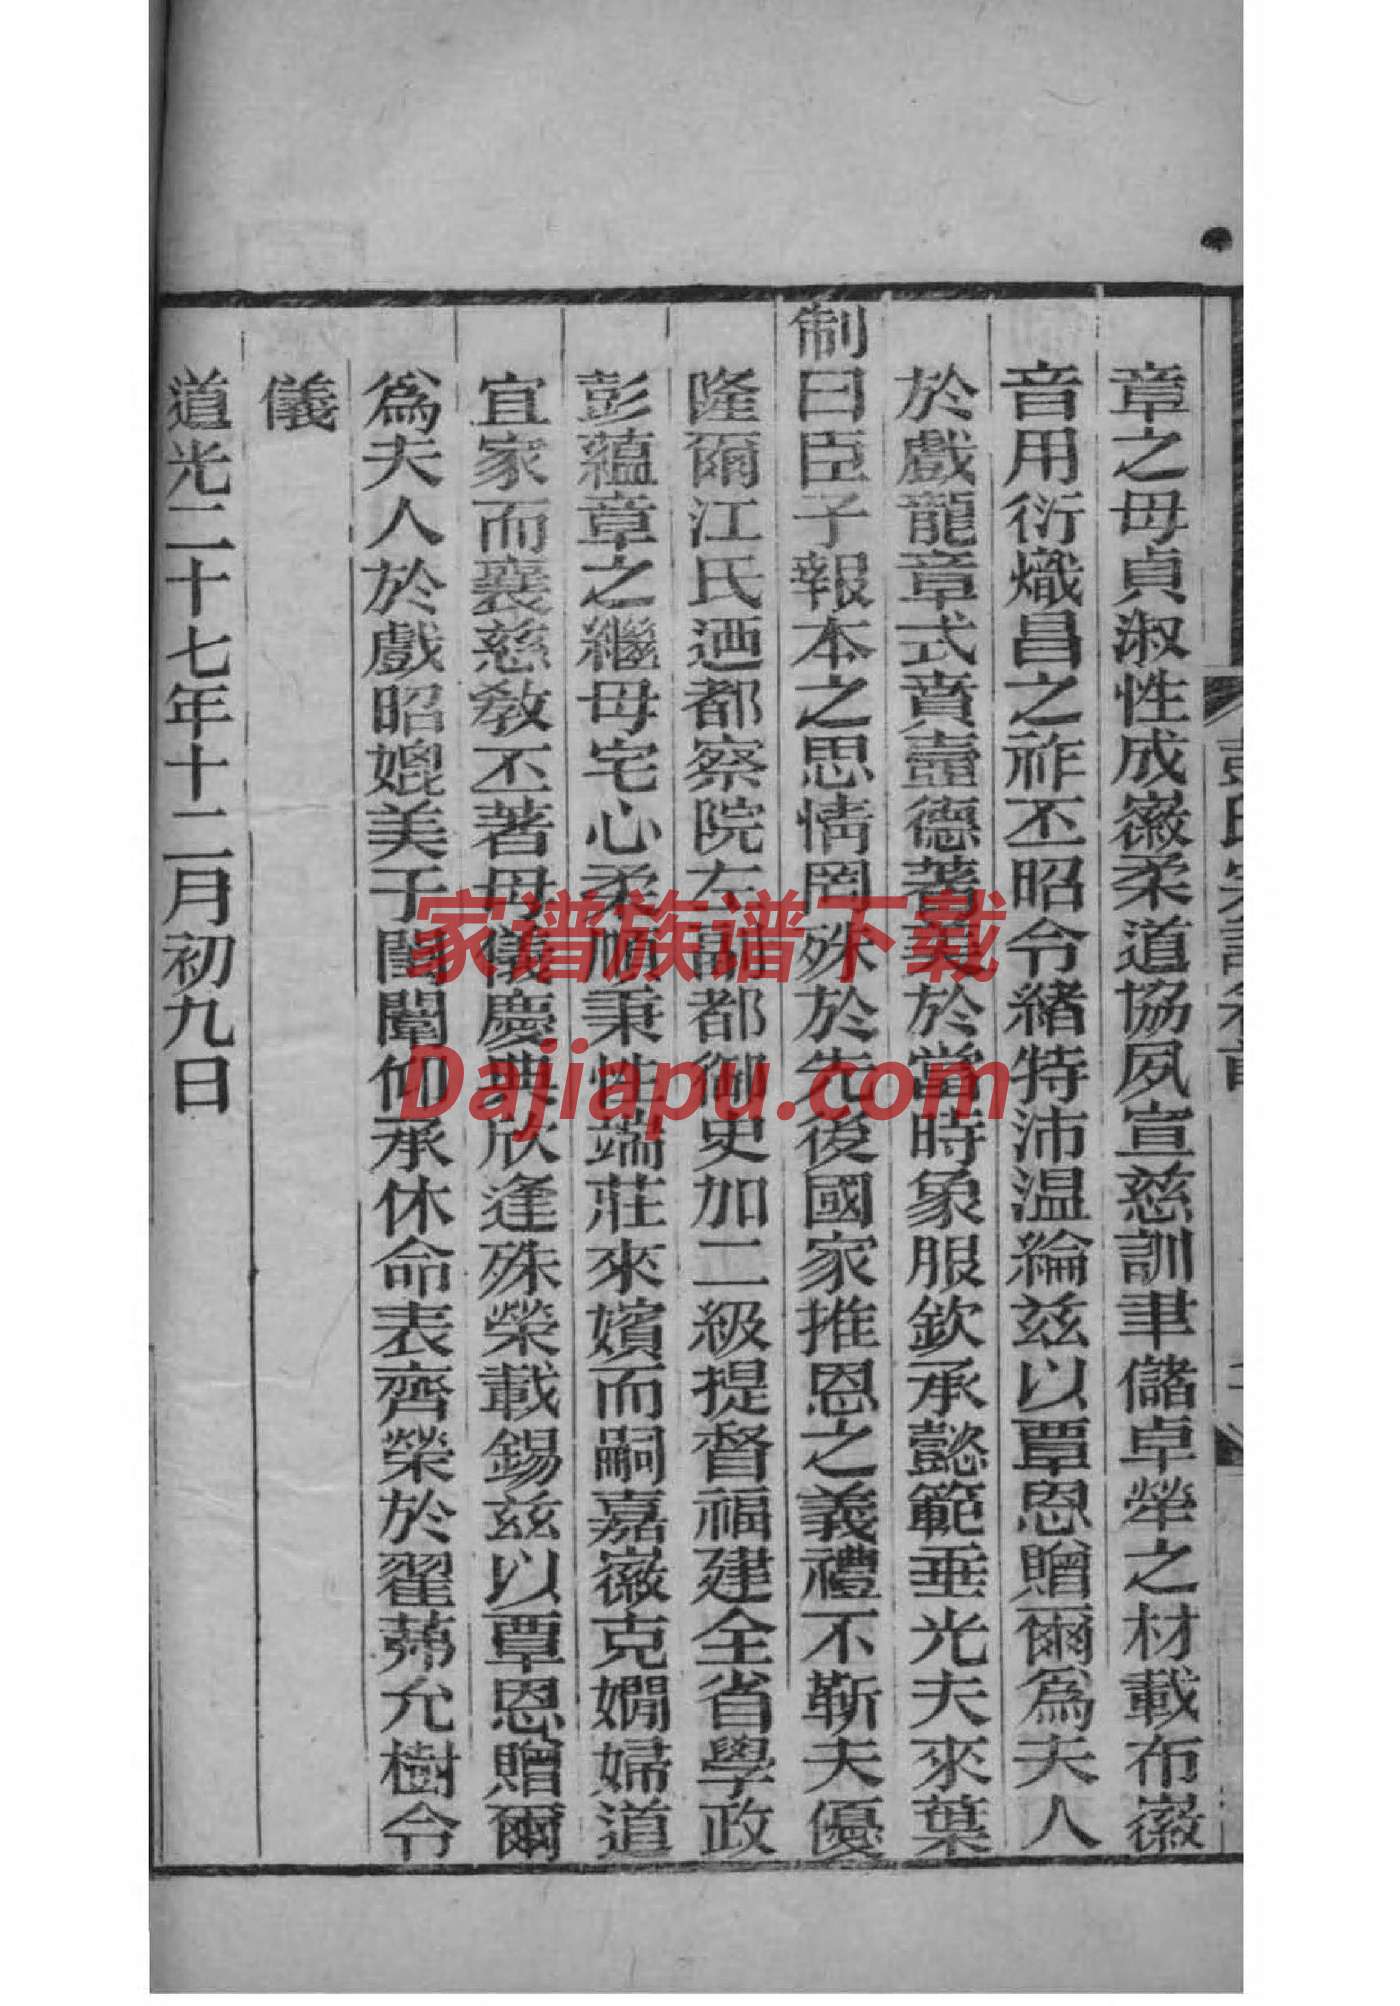 章之母貞淑性成嶶柔道協夙宣慈訓聿儲卓犖之材載布嶶
音用衍熾昌之祚丕昭令緒特沛温綸兹以覃恩贈爾爲夫人
於戲龍章式賁壼德著美於當時象服欽承懿範垂光夫來葉
制曰臣子報本之思情罔殊於先後國家推恩之義禮不靳夫優
隆爾江氏迺都察院左副都御史加二級提督福建全省學政
彭蘊章之繼母宅心柔順秉性端莊來嬪而嗣嘉嶶克嫺婦道
宜家而襄慈敎丕著母儀慶典欣逢殊榮載錫兹以覃恩贈爾
爲夫人於戲昭媲美于閨闈仰承休命表齊榮於翟茀允樹令
儀
道光二十七年十二月初九日
家谱族谱下载
Dajiapu.com